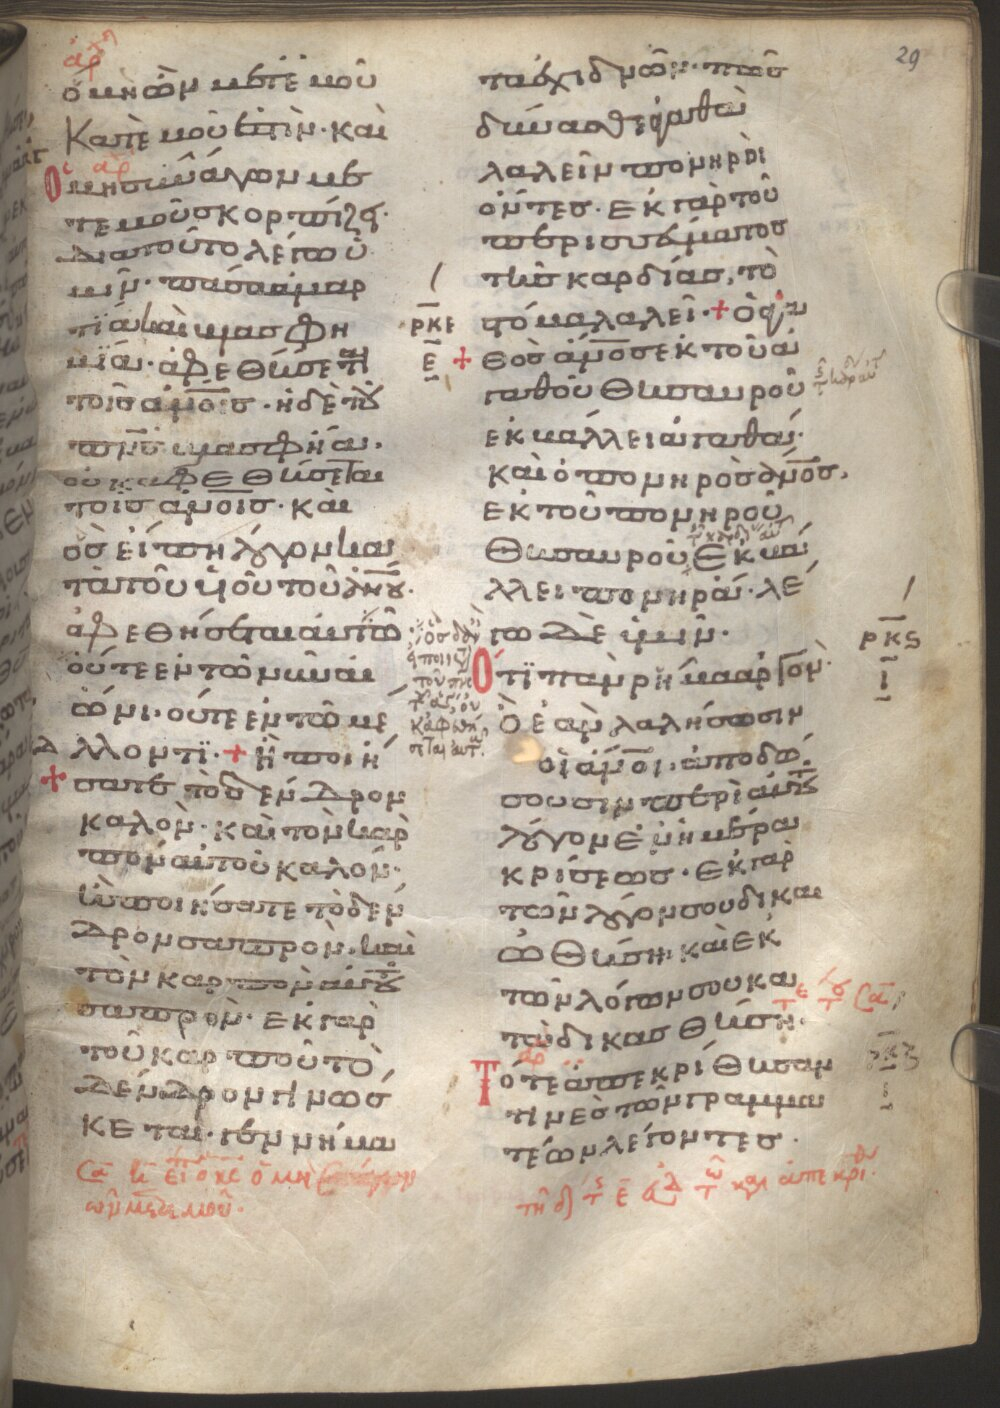 29
ἀρχη
ὁ μὴ ὢν μετ' ἐμοῦ
κατ' ἐμοῦ ἐστίν· καὶ
ὁ μὴ συνάγων μετ'
ἐμοῦ σκορπίζει·
διατοῦτο λέγω ὑ
μῖν· πᾶσα ἁμαρ
τία καὶ βλασφη
μία· ἀφεθήσεται
τοῖς ἀνοις· ἡ δὲ τοῦ
πνς βλασφημία·
οὐκ ἀφεθήσεται
τοῖς ἀνοις· καὶ
ὃς εἴπη λόγον κα
τὰ τοῦ υἱοῦ τοῦ ἀνου·
ἀφεθήσεται αὐτῶ·
οὔτε ἐν τῶ νῦν αἰ
ῶνι· οὔτε ἐν τῶ με
λλοντι· + ἢ ποιή
+ σατε τὸ δένδρον
καλὸν· καὶ τὸν καρ
πὸν αὐτοῦ καλόν·
ἢ ποιήσατε τὸ δέν
δρον σαπρὸν· καὶ
τὸν καρπὸν αὐτοῦ
σαπρὸν· ἐκ γὰρ
τοῦ καρποῦ τὸ
δένδρον γινώσ
κεται· γεννήμα
ρκε
ε
τα ἐχιδνῶν· πῶς
δύνασθε ἀγαθὰ
λαλεῖν πονηροὶ
ὄντες· ἐκ γὰρ τοῦ
περισσεύματος
τῆς καρδίας, τὸ
στόμα λαλεῖ· + ὁ ἀγα
+ θὸς ἀνος ἐκ τοῦ ἀ
γαθοῦ θησαυροῦ
ἐκβάλλει ἀγαθά·
καὶ ὁ πονηρὸς ἀνος,
ἐκ τοῦ πονηροῦ
θησαυροῦ ἐκβά
λλει πονηρά· λέ
γω δὲ ὑμῖν·
ὅτι πᾶν ῥῆμα ἀργὸν·
ὃ ἐὰν λαλήσωσιν
οἱ ἀνοι· ἀποδώ
σουσιν περὶ αὐτοῦ
λόγον ἐν ἡμέρα
κρίσεως· ἐκ γὰρ
τῶν λόγων σου δικαι
ωθήση· καὶ ἐκ
τῶν λόγων σου κα
ταδικασθήση·
τότε ἀπεκρίθησαν
τινὲς τῶν γραμμα
τέων λέγοντες·
ρκς
ι
ρκζ
ι